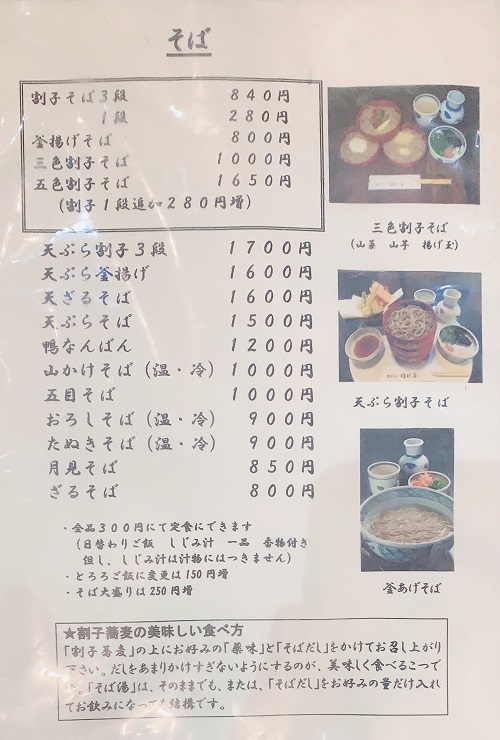 そば
割子そば３段　８４０円
１段　２８０円
釜揚げそば　８００円
三色割子そば　１０００円
五色割子そば　１６５０円
（割子１段追加２８０円増）
天ぷら割子３段　１７００円
天ぷら釜揚げ　１６００円
天ざるそば　１６００円
天ぷらそば　１５００円
鴨なんばん　１２００円
山かけそば（温・冷）１０００円
五目そば　１０００円
おろしそば（温・冷）９００円
たぬきそば（温・冷）９００円
月見そば　８５０円
ざるそば　８００円
三色割子そば
（山菜　山芋　揚げ玉）
天ぷら割子そば
釜あげそば
・全品３００円にて定食にできます
（日替わりご飯　しじみ汁　一品　香物付き
但し、しじみ汁は汁物にはつきません）
・とろろご飯に変更は150円増
・そば大盛りは250円増
★割子蕎麦の美味しい食べ方
「割子蕎麦」の上にお好みの「薬味」と「そばだし」をかけてお召し上がり
下さい。だしをあまりかけすぎないようにするのが、美味しく食べるこつで
す。「そば湯」は、そのままでも、または、「そばだし」をお好みの量だけ入れ
てお飲みになっても結構です。